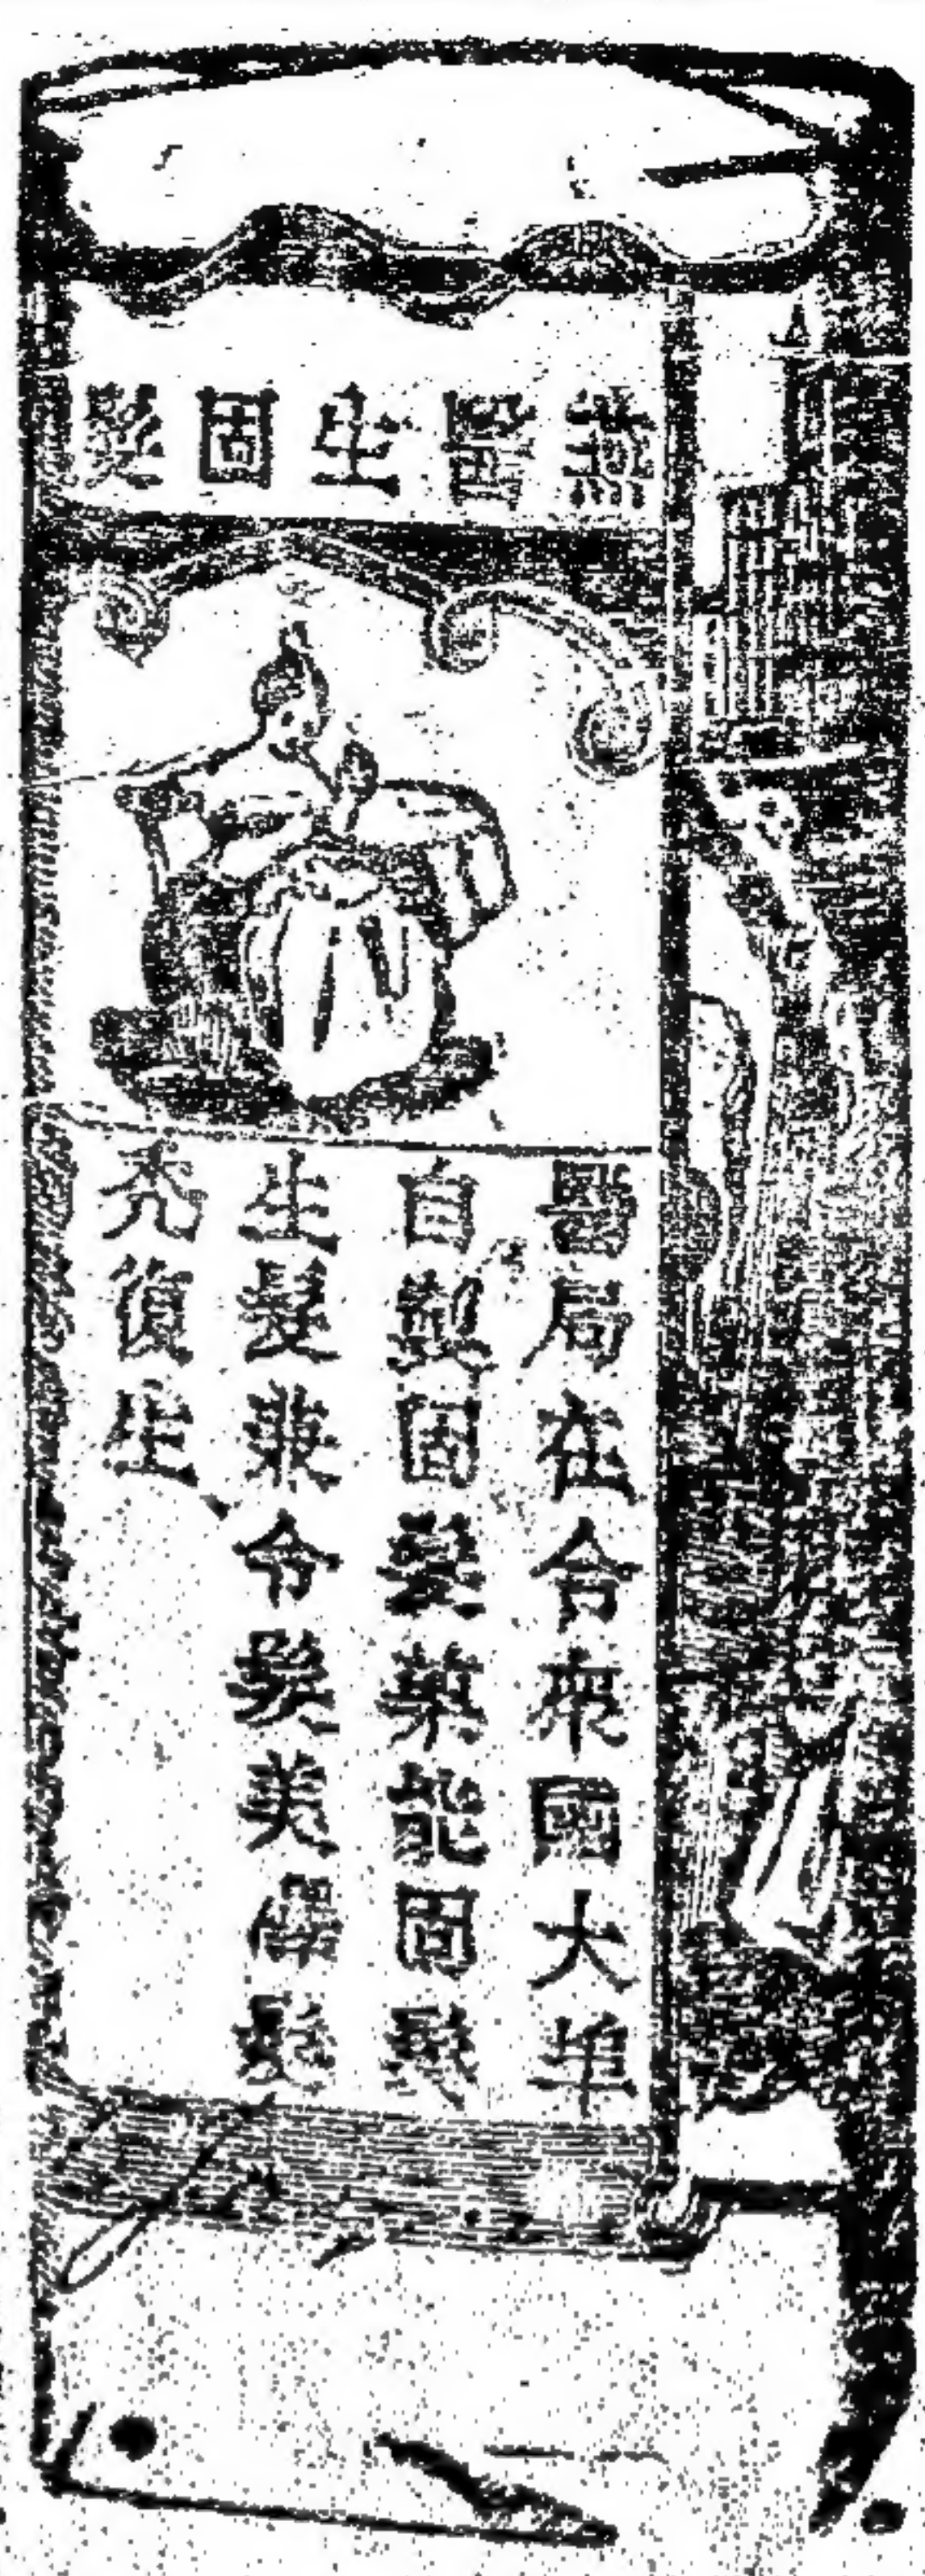 燕醫生固髮
醫局在合衆國大埠
自製固髮藥能固髮
生髮兼令髮美儻髮
秃復生